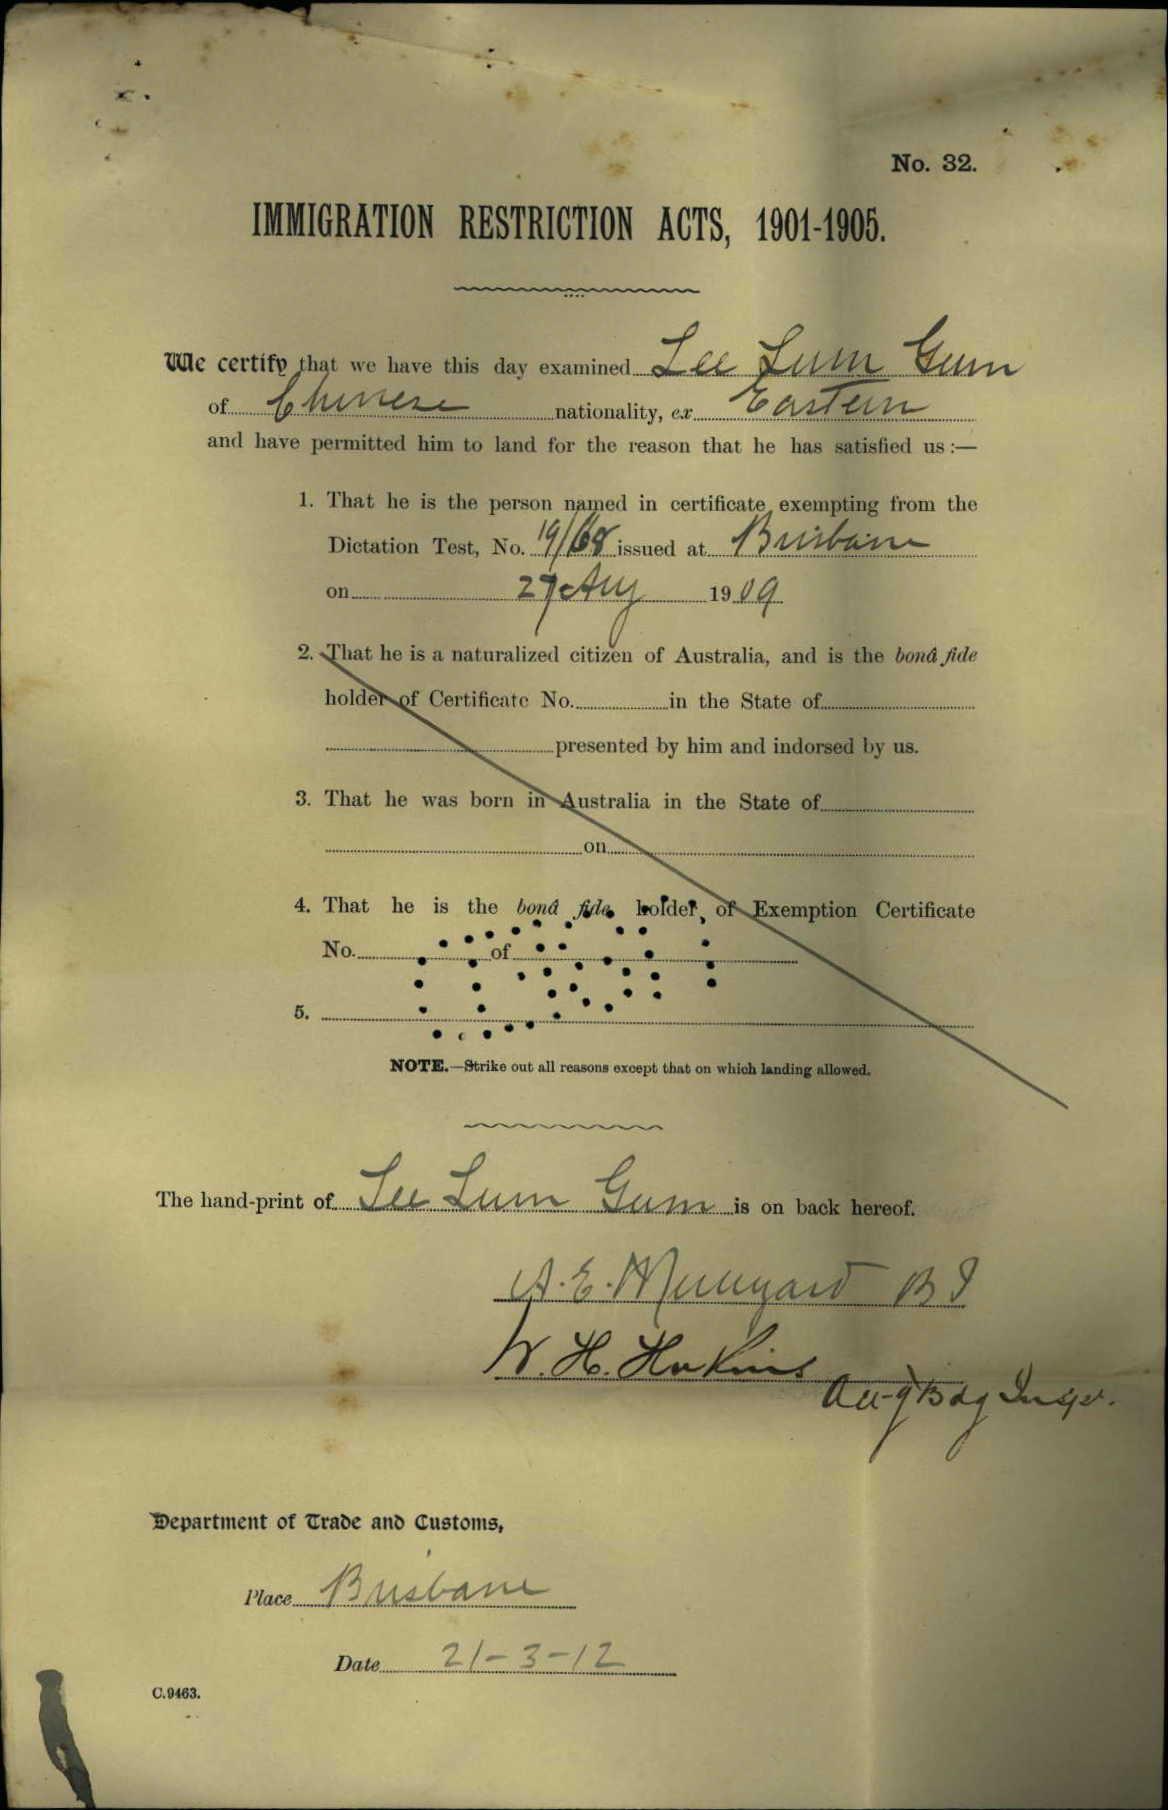 No. 32.
IMMIGRATION RESTRICTION ACTS, 1901-1905.
We certify that we have this day examined Lee Lum Gum
of Chinese nationality, ex Eastern
and have permitted him to land for the reason that he has satisfied us:—
1. That he is the person named in certificate exempting from the
Dictation Test, No. 19/68 issued at Brisbane
on 27 Aug 1909
2. That he is a naturalized citizen of Australia, and is the bonâ fide
holder of Certificate No. in the State of
presented by him and indorsed by us.
3. That he was born in Australia in the State of
on
4. That he is the bonâ fide holder of Exemption Certificate
No. of
5.
NOTE.—Strike out all reasons except that on which landing allowed.
The hand-print of Lee Lum Gum is on back hereof.
A. E. B I
W. H.
Actg Bdg Inspr.
Department of Trade and Customs,
Place Brisbane
Date 21-3-12
C.9463.